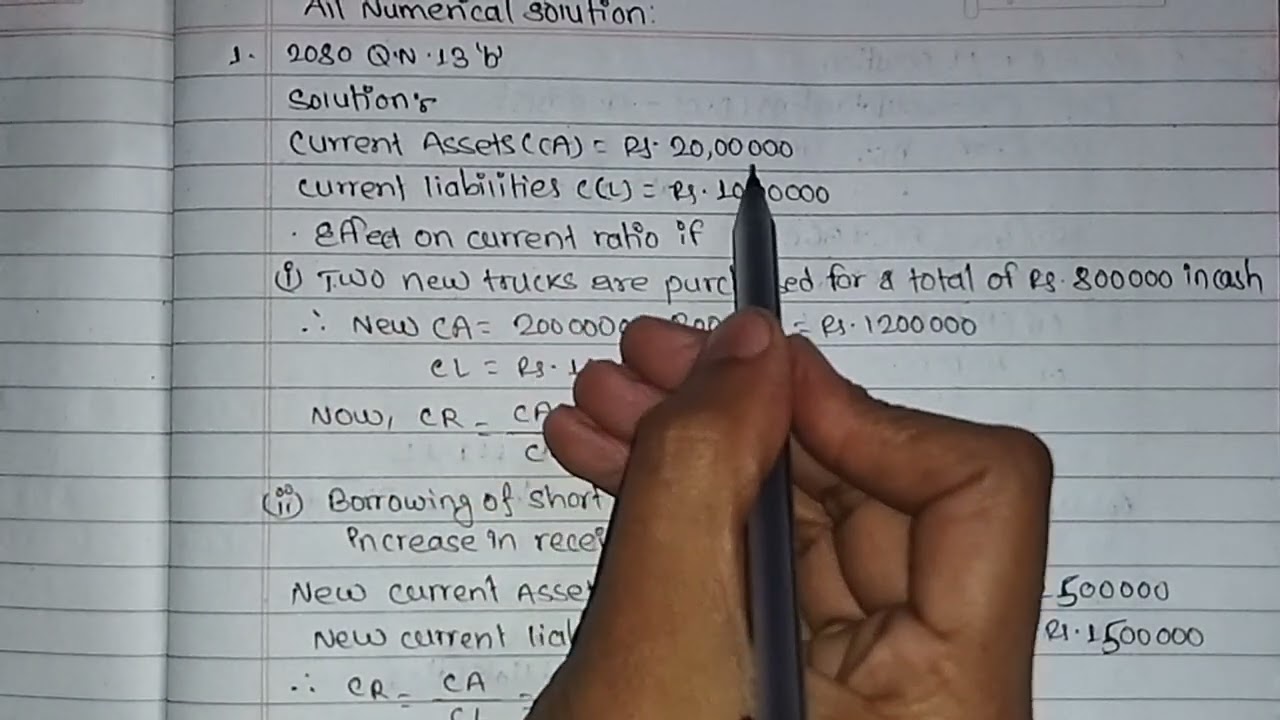 All Numerical solution:
1. 2080 Q.N.13 'b'
Solution:
Current Assets (CA) = Rs. 20,00000
Current liabilities (CL) = Rs. 10 0000
. Effect on current ratio if
(i) Two new trucks are purc sed for a total of Rs. 800000 in cash
∴ New CA = 2000000 = Rs. 1200000
CL = Rs. 1
Now, CR = CA
(ii) Borrowing of short
increase in
New current
New current
500000
Rs. 1500000
∴ CR = CA
CL